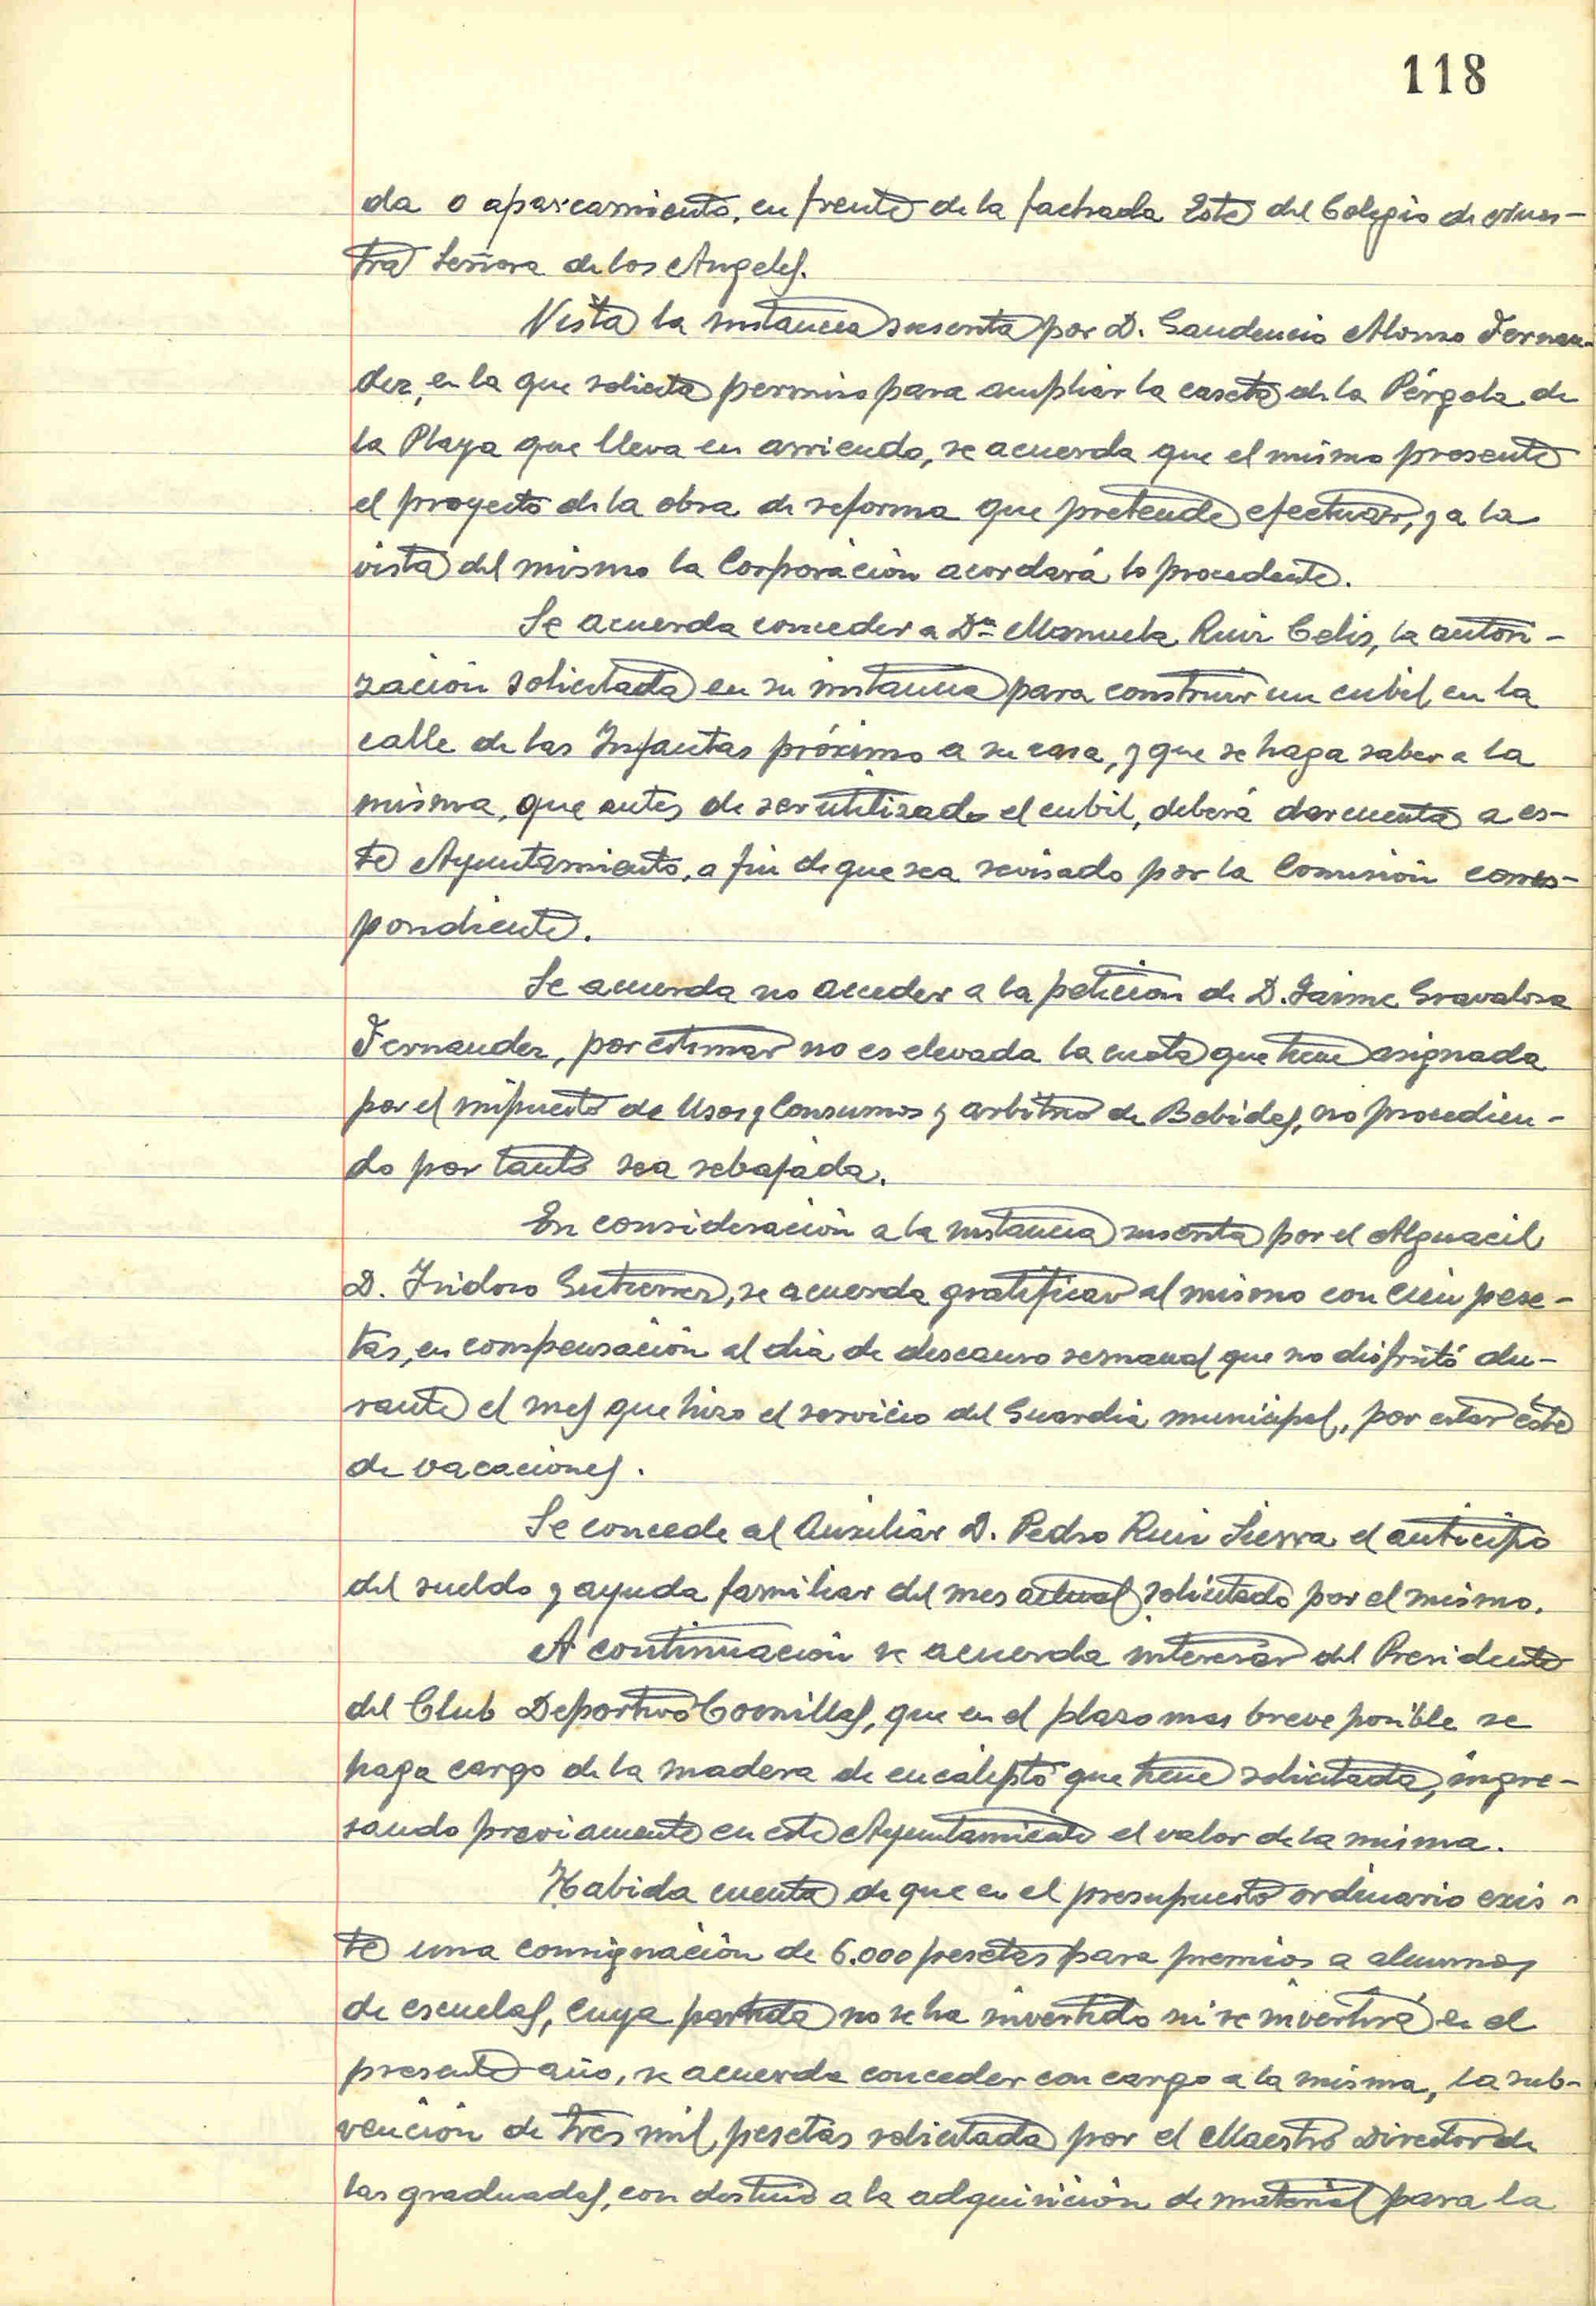 118
da o aparcamiento, en frente de la fachada Este del Colegio de Nues-
tra Señora de los Angeles.
Vista la instancia suscrita por D. Gaudencio Alonso Fernan-
dez, en la que solicita permiso para ampliar la caseta de la Pérgola de
la Playa que lleva en arriendo, se acuerda que el mismo presente
el proyecto de la obra de reforma que pretende efectuar, y a la
vista del mismo la Corporación acordará lo procedente.
Se acuerda conceder a Dª Manuela Ruiz Celis, la autori-
zación solicitada en su instancia para construir un cubil en la
calle de las Infantas próximo a su casa, y que se haga saber a la
misma, que antes de ser utilizado el cubil, deberá dar cuenta a es-
te Ayuntamiento, a fin de que sea revisado por la Comisión corres-
pondiente.
Se acuerda no acceder a la petición de D. Jaime Gravalosa
Fernandez, por estimar no es elevada la cuota que tiene asignada
por el impuesto de Usos y Consumos y arbitrio de Bebidas, no procedien-
do por tanto sea rebajada.
En consideración a la instancia suscrita por el Alguacil
D. Isidoro Gutierrez, se acuerda gratificar al mismo con cien pese-
tas, en compensación al dia de descanso semanal que no disfrutó du-
rante el mes que hizo el servicio del Guardia municipal, por estar éste
de vacaciones.
Se concede al Auxiliar D. Pedro Ruiz Sierra el anticipo
del sueldo y ayuda familiar del mes actual solicitado por el mismo.
A continuación se acuerda interesar del Presidente
del Club Deportivo Comillas, que en el plazo mas breve posible se
haga cargo de la madera de eucalipto que tiene solicitada, ingre-
sando previamente en este Ayuntamiento el valor de la misma.
Habida cuenta de que en el presupuesto ordinario exis-
te una consignación de 6.000 pesetas para premios a alumnos
de escuelas, cuya partida no se ha invertido ni se invertirá en el
presente año, se acuerda conceder con cargo a la misma, la sub-
vención de tres mil pesetas solicitada por el Maestro Director de
las graduadas, con destino a la adquisición de material para la